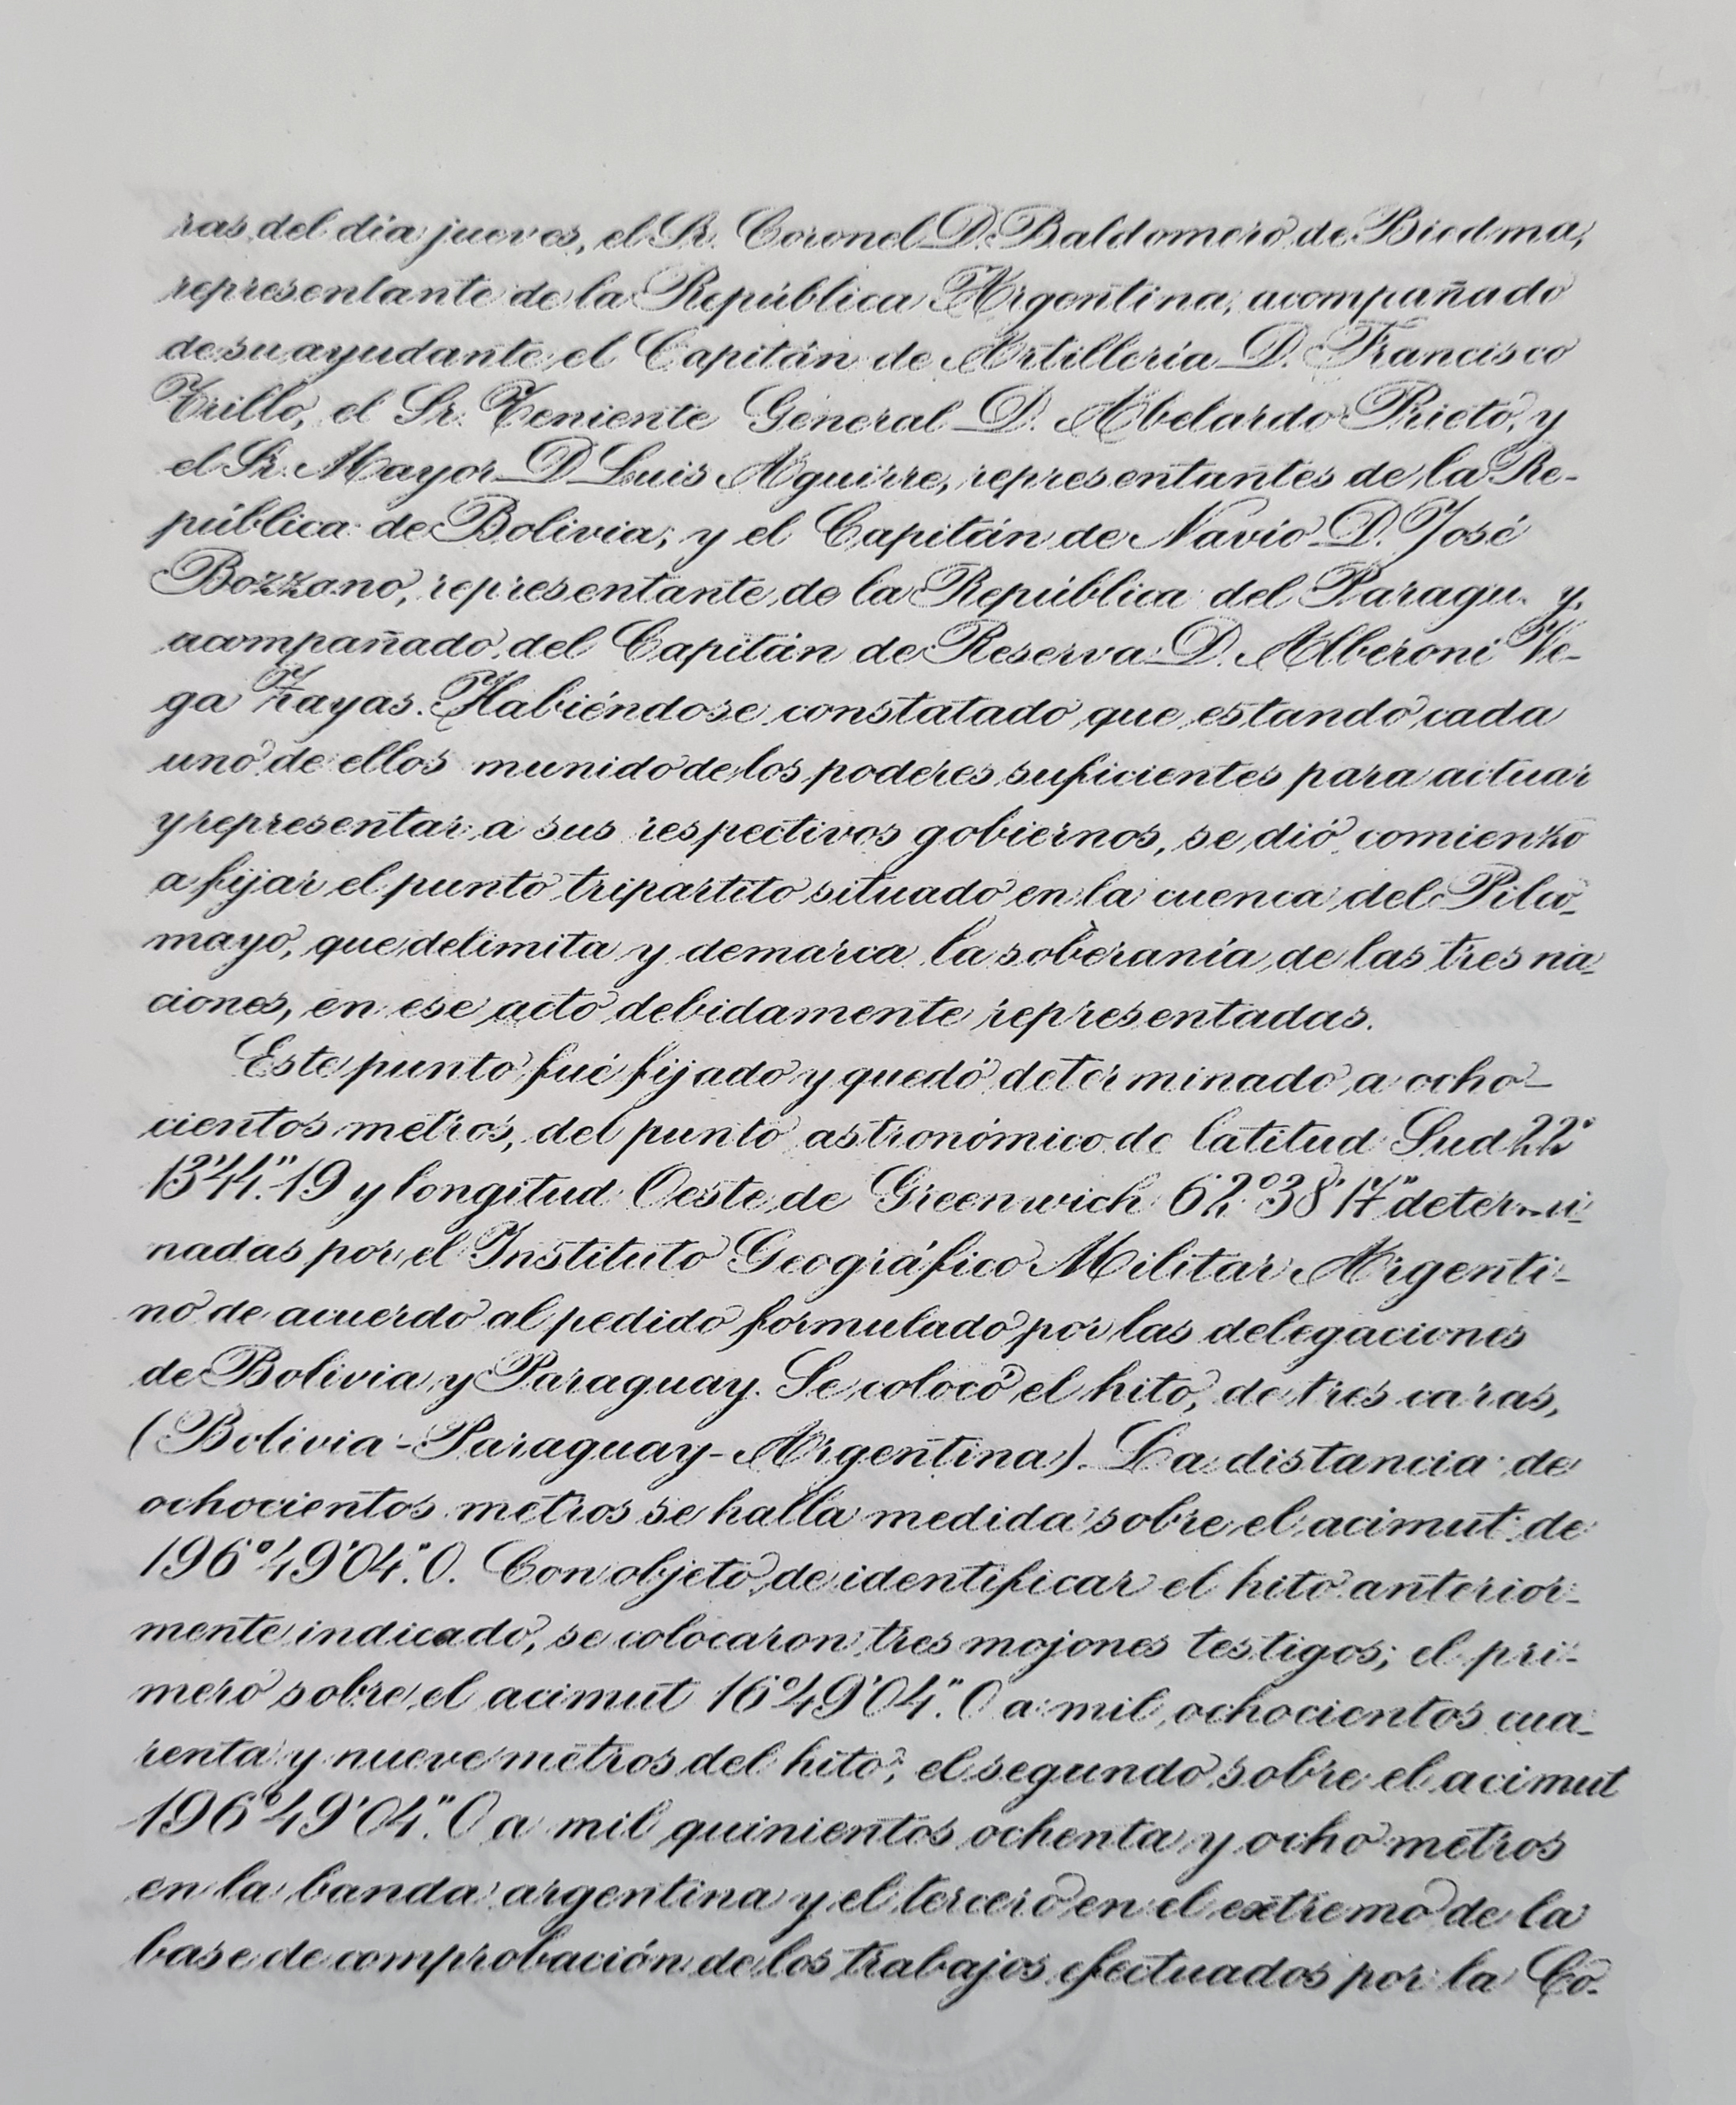 ras del día jueves, el Sr. Coronel D. Baldomero de Biedma,
representante de la República Argentina, acompañado
de su ayudante el Capitán de Artillería D. Francisco
Trillo, el Sr. Teniente General D. Abelardo Prieto, y
el Sr. Mayor D Luis Aguirre, representantes de la Re-
pública de Bolivia; y el Capitán de Navío D. José
Bozzano, representante de la República del Paragu y,
acompañado del Capitán de Reserva D. Alberoni Ve-
ga Zayas. Habiéndose constatado que estando cada
uno de ellos munido de los poderes suficientes para actuar
y representar a sus respectivos gobiernos, se dió comienzo
a fijar el punto tripartito situado en la cuenca del Pilco-
mayo, que delimita y demarca la soberanía de las tres na-
ciones, en ese acto debidamente representadas.
Este punto fué fijado y quedó determinado a ocho-
cientos metros, del punto astronómico de latitud Sud 22°
13'44".19 y longitud Oeste de Greenwich 62°38'17" determi-
nadas por el Instituto Geográfico Militar Argenti-
no de acuerdo al pedido formulado por las delegaciones
de Bolivia y Paraguay. Se colocó el hito, de tres caras,
(Bolivia-Paraguay-Argentina). La distancia de
ochocientos metros se halla medida sobre el acimut de
196°49'04".0. Con objeto de identificar el hito anterior-
mente indicado, se colocaron tres mojones testigos; el pri-
mero sobre el acimut 16°49'04".0 a mil ochocientos cua-
renta y nueve metros del hito; el segundo sobre el acimut
196°49'04".0 a mil quinientos ochenta y ocho metros
en la banda argentina y el tercero en el extremo de la
base de comprobación de los trabajos efectuados por la Co-